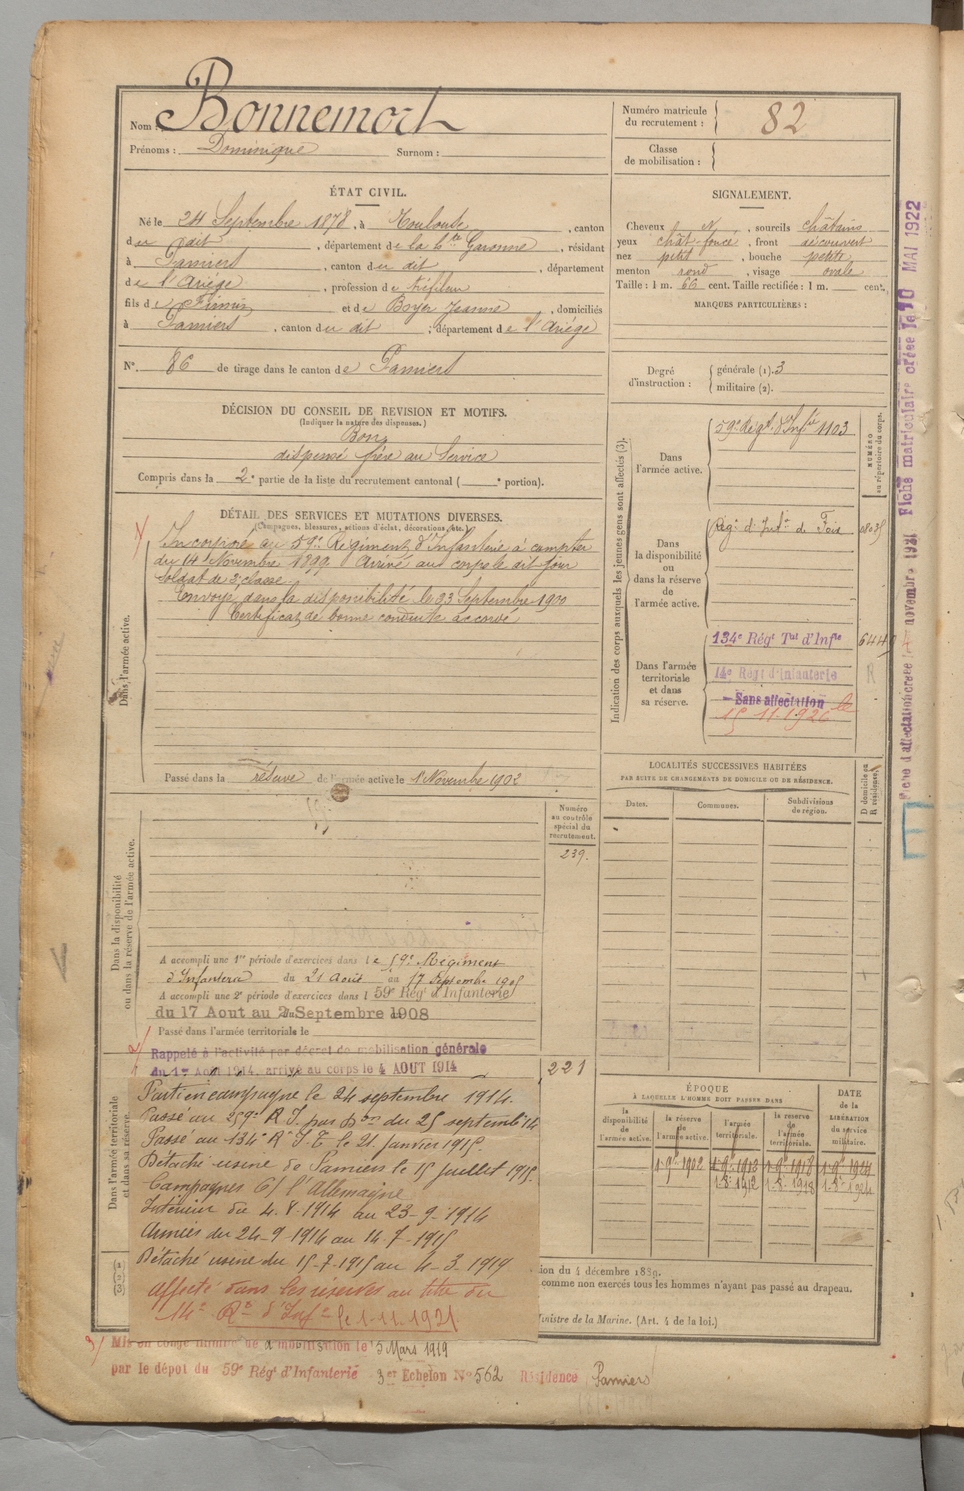 Nom : Bonnemort
Prénoms : Dominique Surnom :
Numéro matricule du recrutement : 82
Classe de mobilisation :
ÉTAT CIVIL.
Né le 24 Septembre 1878, à Toulouse, canton
du dit, département de la Hte Garonne, résidant
à Pamiers, canton du dit, département
de l'Ariège, profession de tréfileur
fils de Firmin et de Boyer Jeanne, domiciliés
à Pamiers, canton du dit, département de l'Ariège
N°. 86 de tirage dans le canton de Pamiers
SIGNALEMENT.
Cheveux N, sourcils châtains
yeux chât foncé, front découvert
nez petit, bouche petite
menton rond, visage ovale
Taille : 1 m. 66 cent. Taille rectifiée : 1 m. cent.
MARQUES PARTICULIÈRES :
Degré d'instruction : générale (1). 3
militaire (2).
DÉCISION DU CONSEIL DE REVISION ET MOTIFS.
(Indiquer la nature des dispenses.)
Bon,
dispensé frère au Service
Compris dans la 2e partie de la liste du recrutement cantonal ( e portion).
DÉTAIL DES SERVICES ET MUTATIONS DIVERSES.
(Campagnes, blessures, actions d'éclat, décorations, etc.)
Dans l'armée active.
Incorporé au 59e Régiment d'Infanterie à compter
du 14 Novembre 1899 Arrivé au corps le dit jour
Soldat de 2e classe.
Envoyé dans la disponibilité le 23 Septembre 1900
Certificat de bonne conduite accordé
Passé dans la réserve de l'armée active le 1 Novembre 1902
Indication des corps auxquels les jeunes gens sont affectés (3).
NUMÉRO au répertoire du corps.
Dans l'armée active.
59e Régt d'Infie 1103
Dans la disponibilité ou dans la réserve de l'armée active.
Régt d'Infie de Foix
Dans l'armée territoriale et dans sa réserve.
134e Régt Tal d'Infie 644
14e Régt d'infanterie R
Sans affectation le
15 11 1926
LOCALITÉS SUCCESSIVES HABITÉES
PAR SUITE DE CHANGEMENTS DE DOMICILE OU DE RÉSIDENCE.
Dates. Communes. Subdivisions de région. D domicile ou R résidence.
Dans la disponibilité ou dans la réserve de l'armée active.
Numéro au contrôle spécial du recrutement.
239.
A accompli une 1re période d'exercices dans le 59e Régiment
d'Infanterie du 21 Août au 17 Septembre 1905
A accompli une 2e période d'exercices dans l 59e Régt d'Infanterie
du 17 Aout au Septembre 1908
Passé dans l'armée territoriale le
2/ Rappelé à l'activité par décret de mobilisation générale
du 1er Août 1914, arrivé au corps le 4 AOUT 1914
221
Dans l'armée territoriale et dans sa réserve.
Parti en campagne le 24 septembre 1914.
Passé au 259e R I. par Don du 25 septembre 14
Passé au 134e Rt I. T. le 21 janvier 1915.
Détaché usine de Pamiers le 15 juillet 1915.
Campagnes C/ l'Allemagne
Intérieur du 4-8-1914 au 23-9-1914
Armées du 24-9-1914 au 14-7-1915
Détaché usine du 15-7-1915 au 4-3-1919
Affecté dans les réserves au titre du
14e Rt d'Infie le 1-11-1921
ÉPOQUE
À LAQUELLE L'HOMME DOIT PASSER DANS
la disponibilité de l'armée active. la réserve de l'armée active. l'armée territoriale. la réserve de l'armée territoriale. DATE de la LIBÉRATION du service militaire.
1-9e 1902 1-9e 1912 1-9e 1918 1-9e 1924
1-8e 1912 1-8e 1918 1-8e 1924
(1) (2) (3)
ion du 4 décembre 1889.
comme non exercés tous les hommes n'ayant pas passé au drapeau.
Ministre de la Marine. (Art. 4 de la loi.)
3/ Mis en congé illimité de démobilisation le 5 Mars 1919
par le dépôt du 59e Régt d'Infanterie 3er Echelon N° 562 Résidence Pamiers
Fiche d'affectation créée novembre 1921 Fiche matriculaire créée le 10 MAI 1922